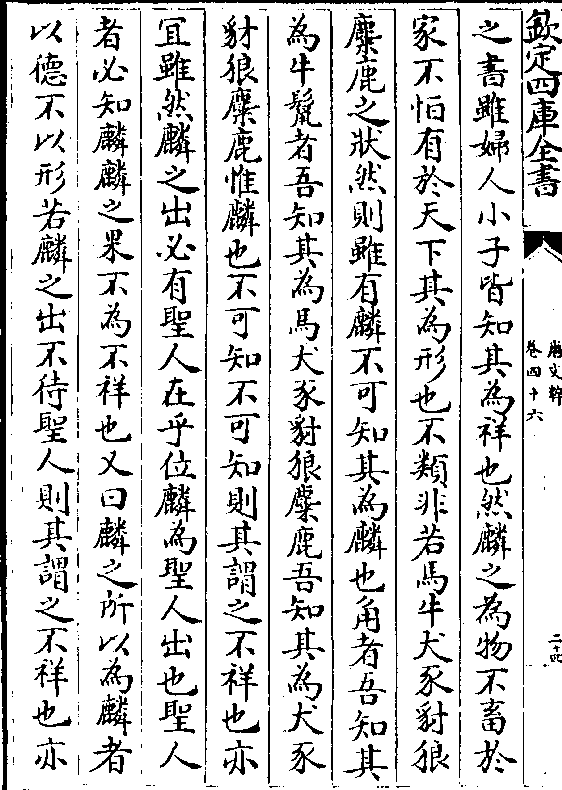 欽定四庫全書
唐文粹
卷四十六
二十四
之書雖婦人小子皆知其為祥也然麟之為物不畜於
家不怕有於天下其為形也不類非若馬牛犬豕豺狼
麋鹿之狀然則雖有麟不可知其為麟也角者吾知其
為牛鬛者吾知其為馬犬豕豺狼麋鹿吾知其為犬豕
豺狼麋鹿惟麟也不可知不可知則其謂之不祥也亦
冝雖然麟之出必有聖人在乎位麟為聖人出也聖人
者必知麟麟之果不為不祥也又曰麟之所以為麟者
以德不以形若麟之出不待聖人則其謂之不祥也亦